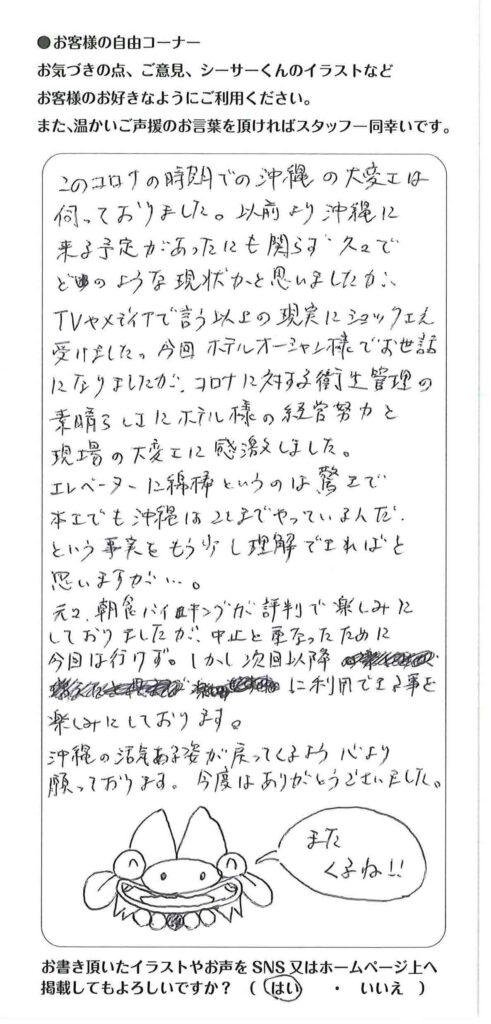 ●お客様の自由コーナー
お気づきの点、ご意見、シーサーくんのイラストなど
お客様のお好きなようにご利用ください。
また、温かいご声援のお言葉を頂ければスタッフ一同幸いです。
このコロナの時期での沖縄の大変エは
伺っておりました。以前より沖縄に
来る予定があったにも関らず久々で
どのような現状かと思いましたが、
TVやメディアで言う以上の現実にショックえ
受けました。今回ホテルオーシャン様でお世話
になりましたが、コロナに対する衛生管理の
素晴らしエにホテル様の経営努力と
現場の大変エに感激しました。
エレベーターに綿棒というのは驚エで
本エでも沖縄はここまでやっている人だ、
という事実をもう少し理解できればと
思いますが…。
元々、朝食バイキングが評判で楽しみに
しておりましたが、中止と重なったために
今回は行けず。しかし次回以降
に利用できる事を
楽しみにしております。
沖縄の活気ある姿が戻ってくるよう心より
願っております。今度はありがとうございました。
また
くるね!!
お書き頂いたイラストやお声をSNS又はホームページ上へ
掲載してもよろしいですか? ( はい ・ いいえ )